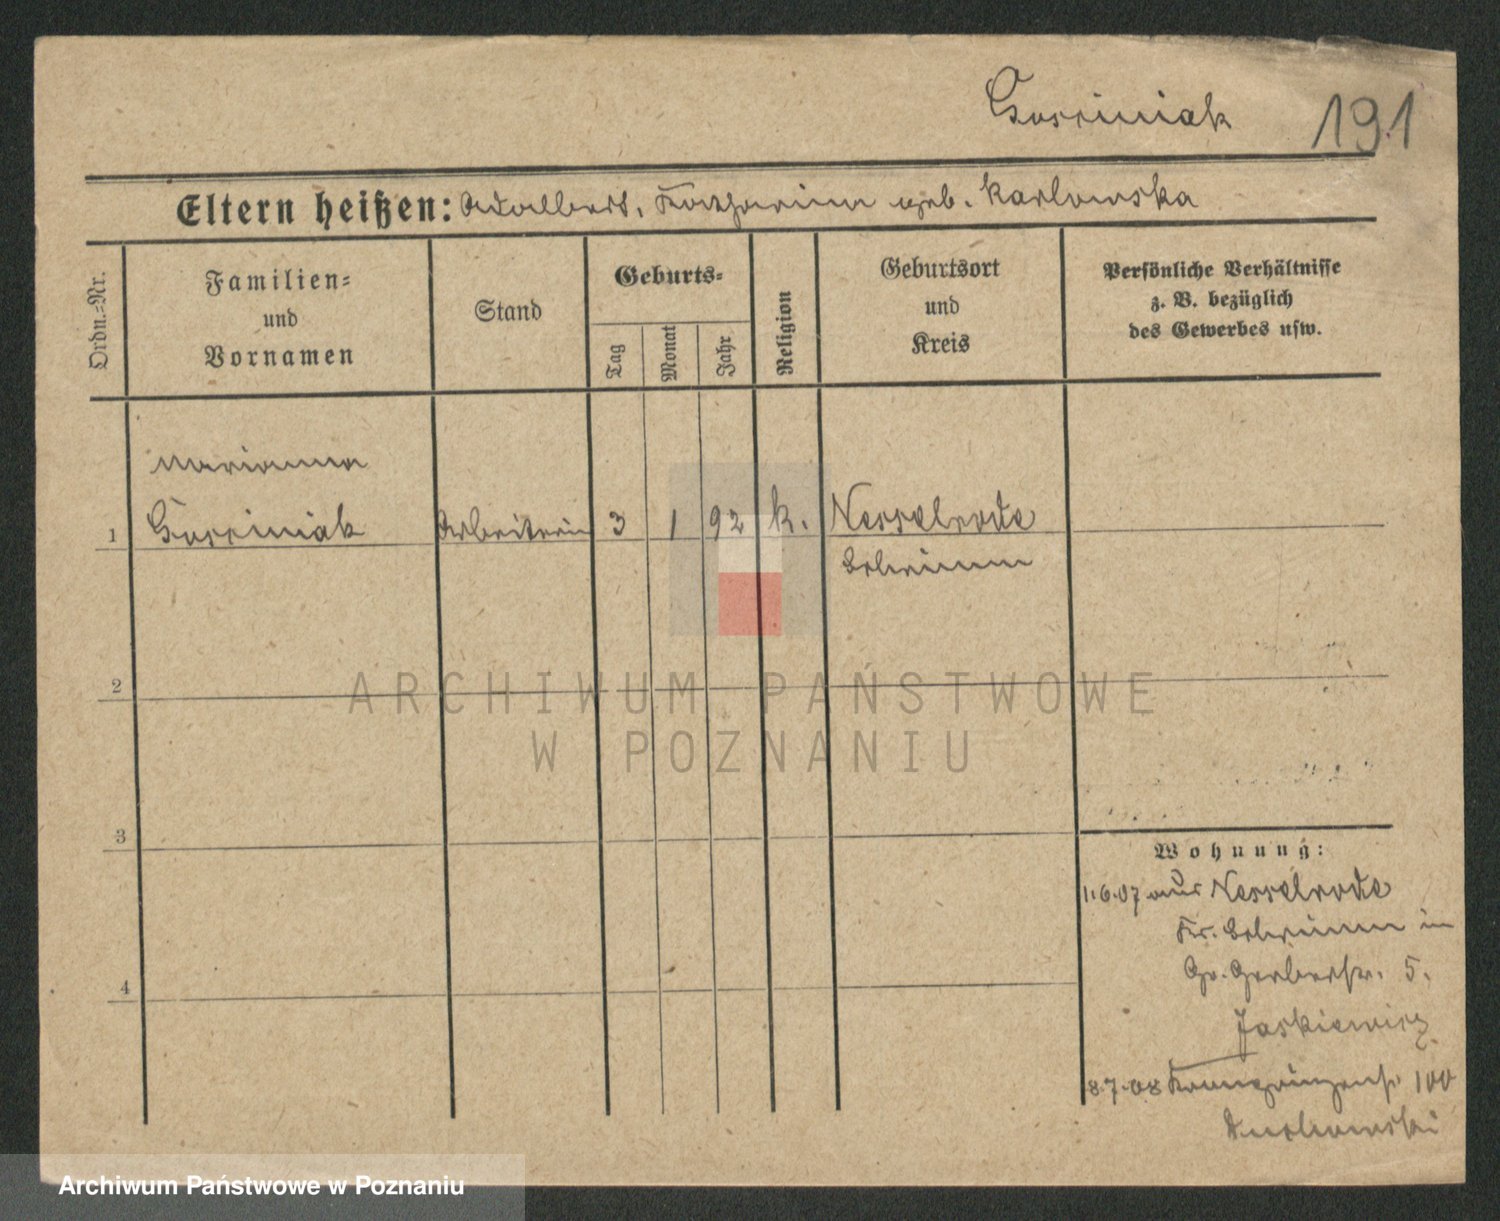 Gosciniak 191
Eltern heißen: Adalbert, Katharina geb. Karlowska
Ordn.=Nr.
Familien=
und
Vornamen
Stand
Geburts=
Tag
Monat
Jahr
Religion
Geburtsort
und
Kreis
Persönliche Verhältnisse
z. B. bezüglich
des Gewerbes usw.
Marianna
1 Gosciniak Arbeiterin 3 1 92 k. Nesselrode
Schrimm
2
3
4
Wohnung:
1.6.07 aus Nesselrode
Kr. Schrimm in
Gr. Gerberstr. 5.
Jaskiewicz
8.7.08 Kronprinzenstr 100
ARCHIWUM PAŃSTWOWE
W POZNANIU
Archiwum Państwowe w Poznaniu